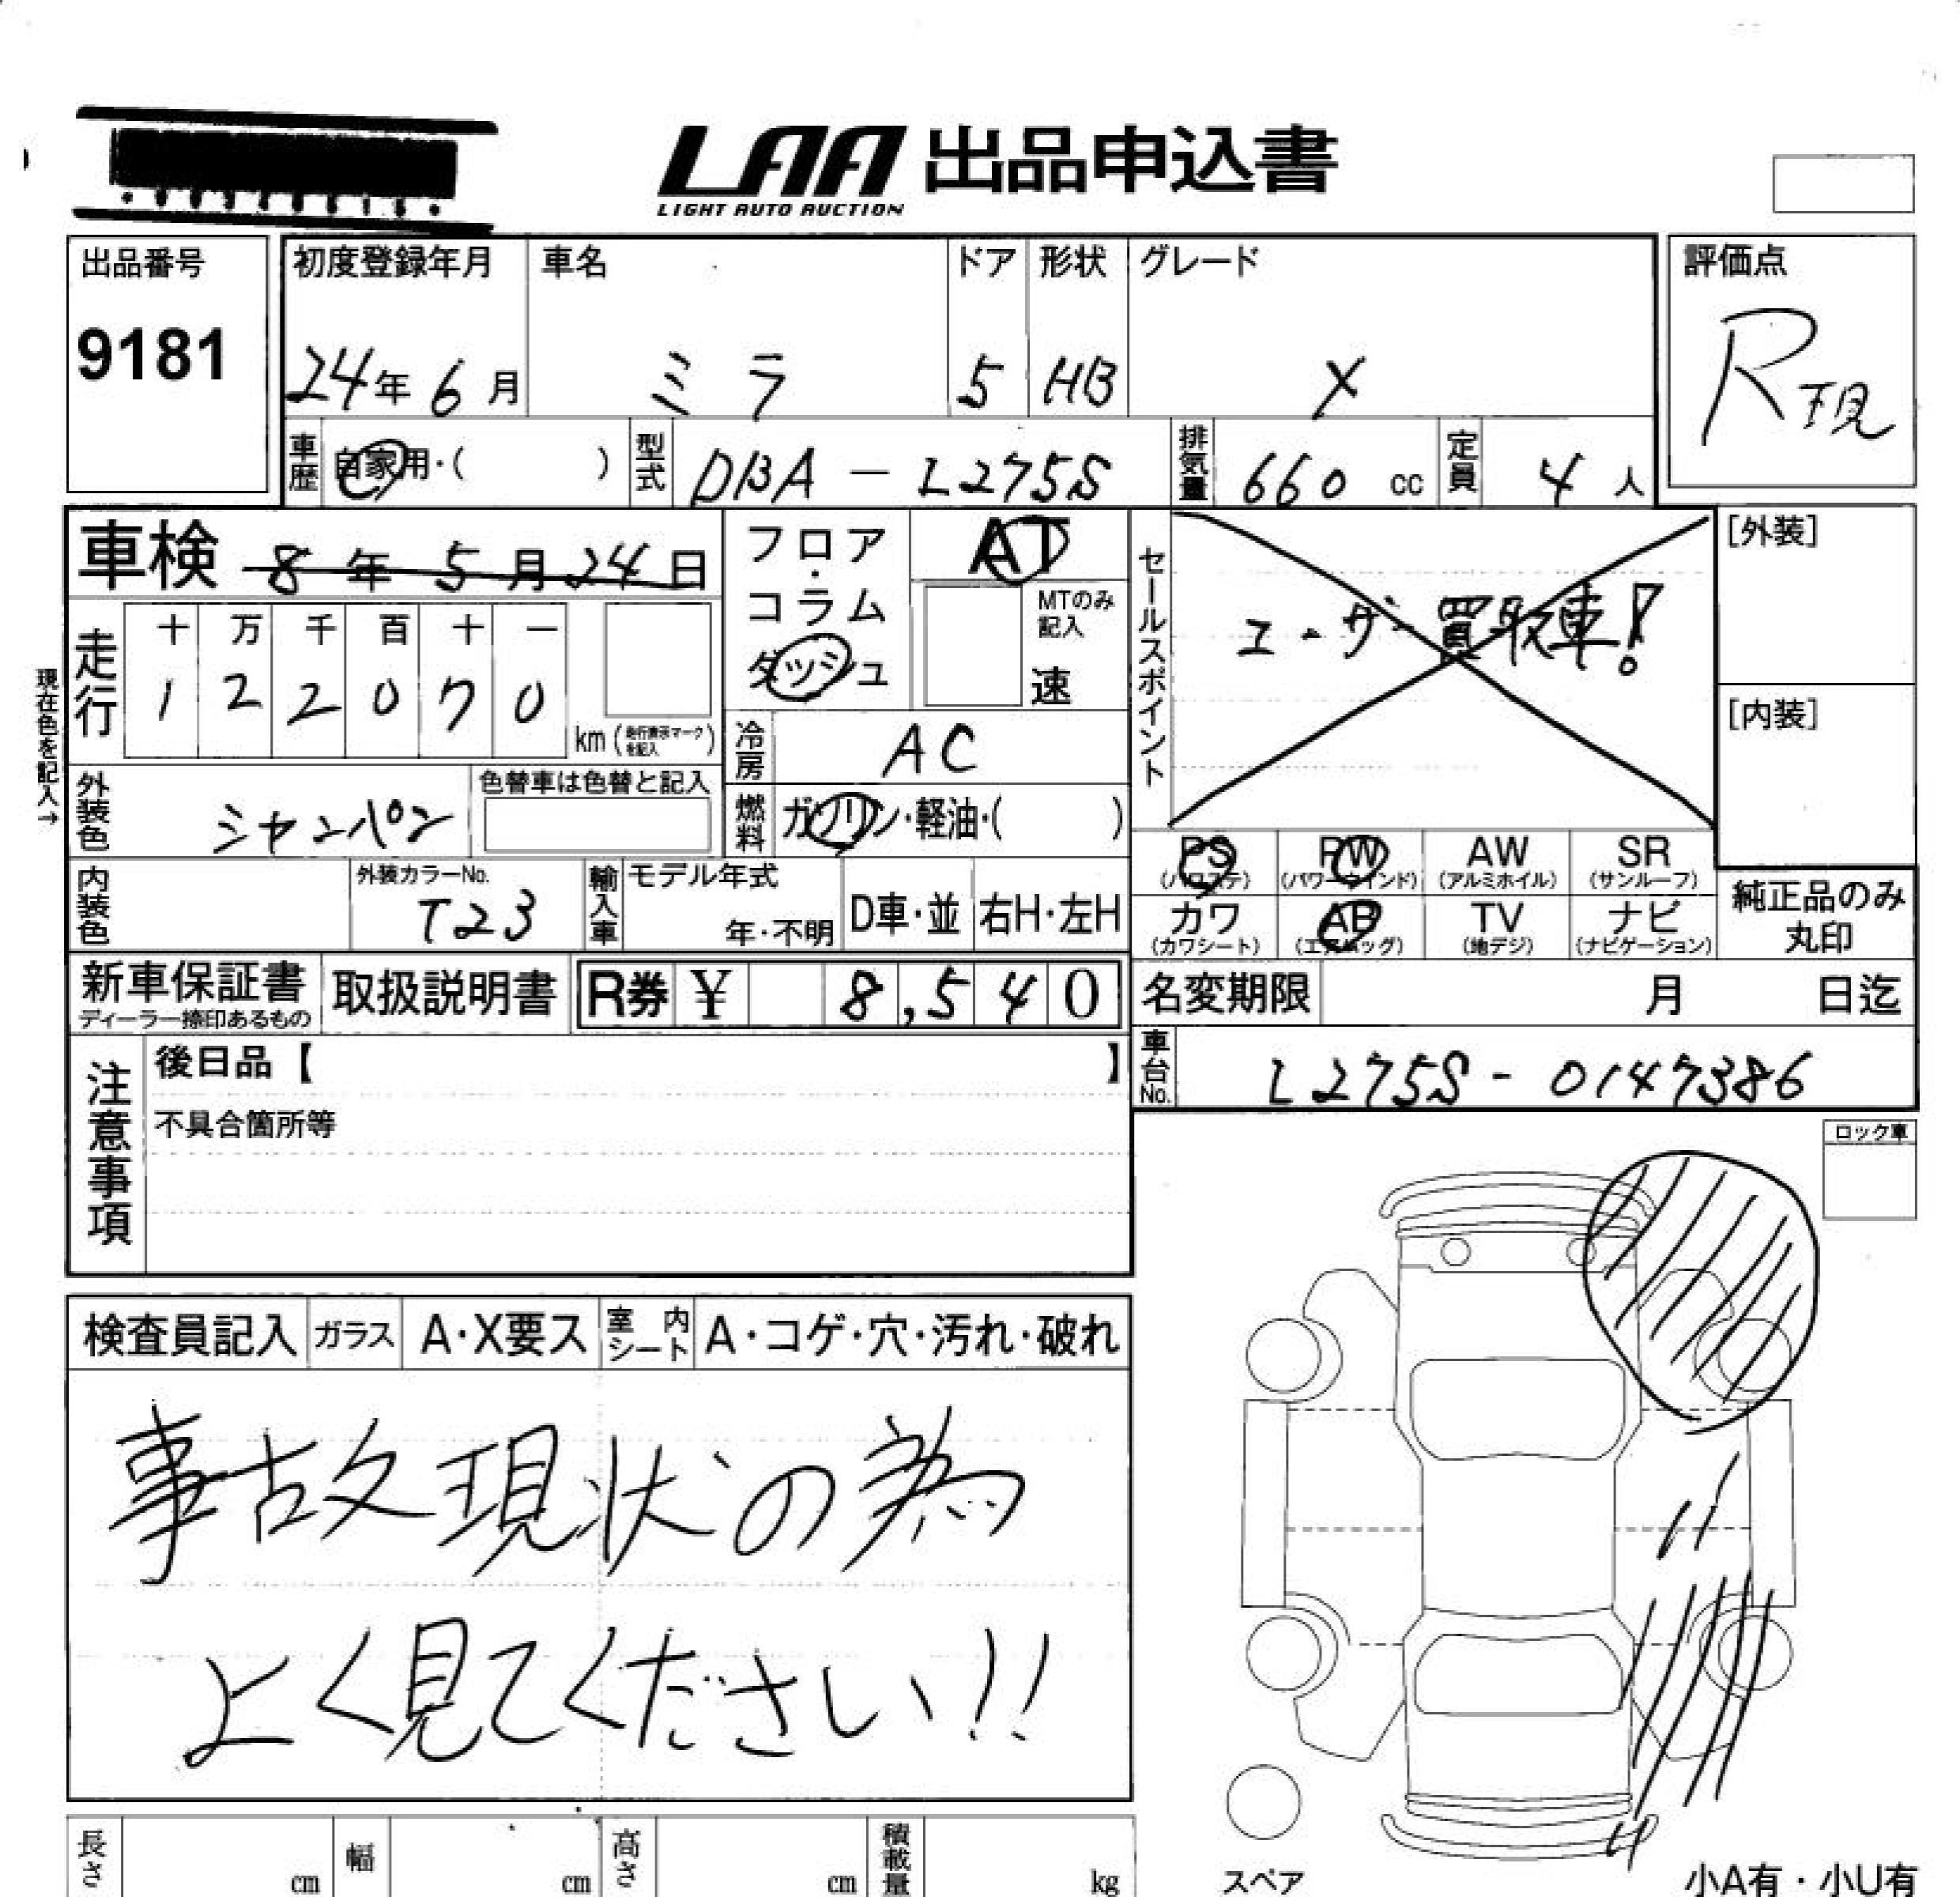 LAA 出品申込書
LIGHT AUTO AUCTION
出品番号
9181
初度登録年月
24年 6月
車名
ミラ
ドア
5
形状
HB
グレード
X
評価点
R
車歴 自家用・( )
型式 DBA - L275S
排気量 660 cc
定員 4 人
車検 8年 5月 24日
フロア・コラム ダッシュ
AT
MTのみ記入
速
セールスポイント
ユーザー買取車!
[外装]
[内装]
現在色を記入→
走行
十 万 千 百 十 一
1 2 2 0 7 0
km (走行表示マークを記入)
冷房 AC
外装色 シャンパン
色替車は色替と記入
燃料 ガソリン・軽油・( )
PS (パワステ)
PW (パワーウインド)
AW (アルミホイル)
SR (サンルーフ)
内装色
外装カラーNo.
T23
輸入車
モデル年式
年・不明
D車・並
右H・左H
カワ (カワシート)
AB (エアバッグ)
TV (地デジ)
ナビ (ナビゲーション)
純正品のみ
丸印
新車保証書
ディーラー捺印あるもの
取扱説明書
R券 ¥ 8,540
名変期限 月 日迄
注意事項
後日品【 】
不具合箇所等
車台No. L275S - 0147386
ロック車
検査員記入
ガラス A・X要ス
室内シート A・コゲ・穴・汚れ・破れ
事故現状の為
よく見てください!!
長さ cm
幅 cm
高さ cm
積載量 kg
スペア
小A有・小U有